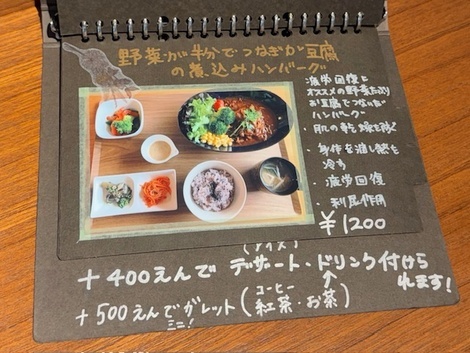 野菜が半分でつなぎが豆腐
の煮込みハンバーグ
疲労回復に
オススメの野菜たっぷり
お豆腐でつないだ
ハンバーグ
・肌の乾燥を防ぐ
・身体を潤し熱を
冷す
・疲労回復
・利尿作用
¥1200
(アイス)
+400えんで デザート・ドリンク付けら
れます!
+500えんでガレット(コーヒー
紅茶・お茶)
ミニ!